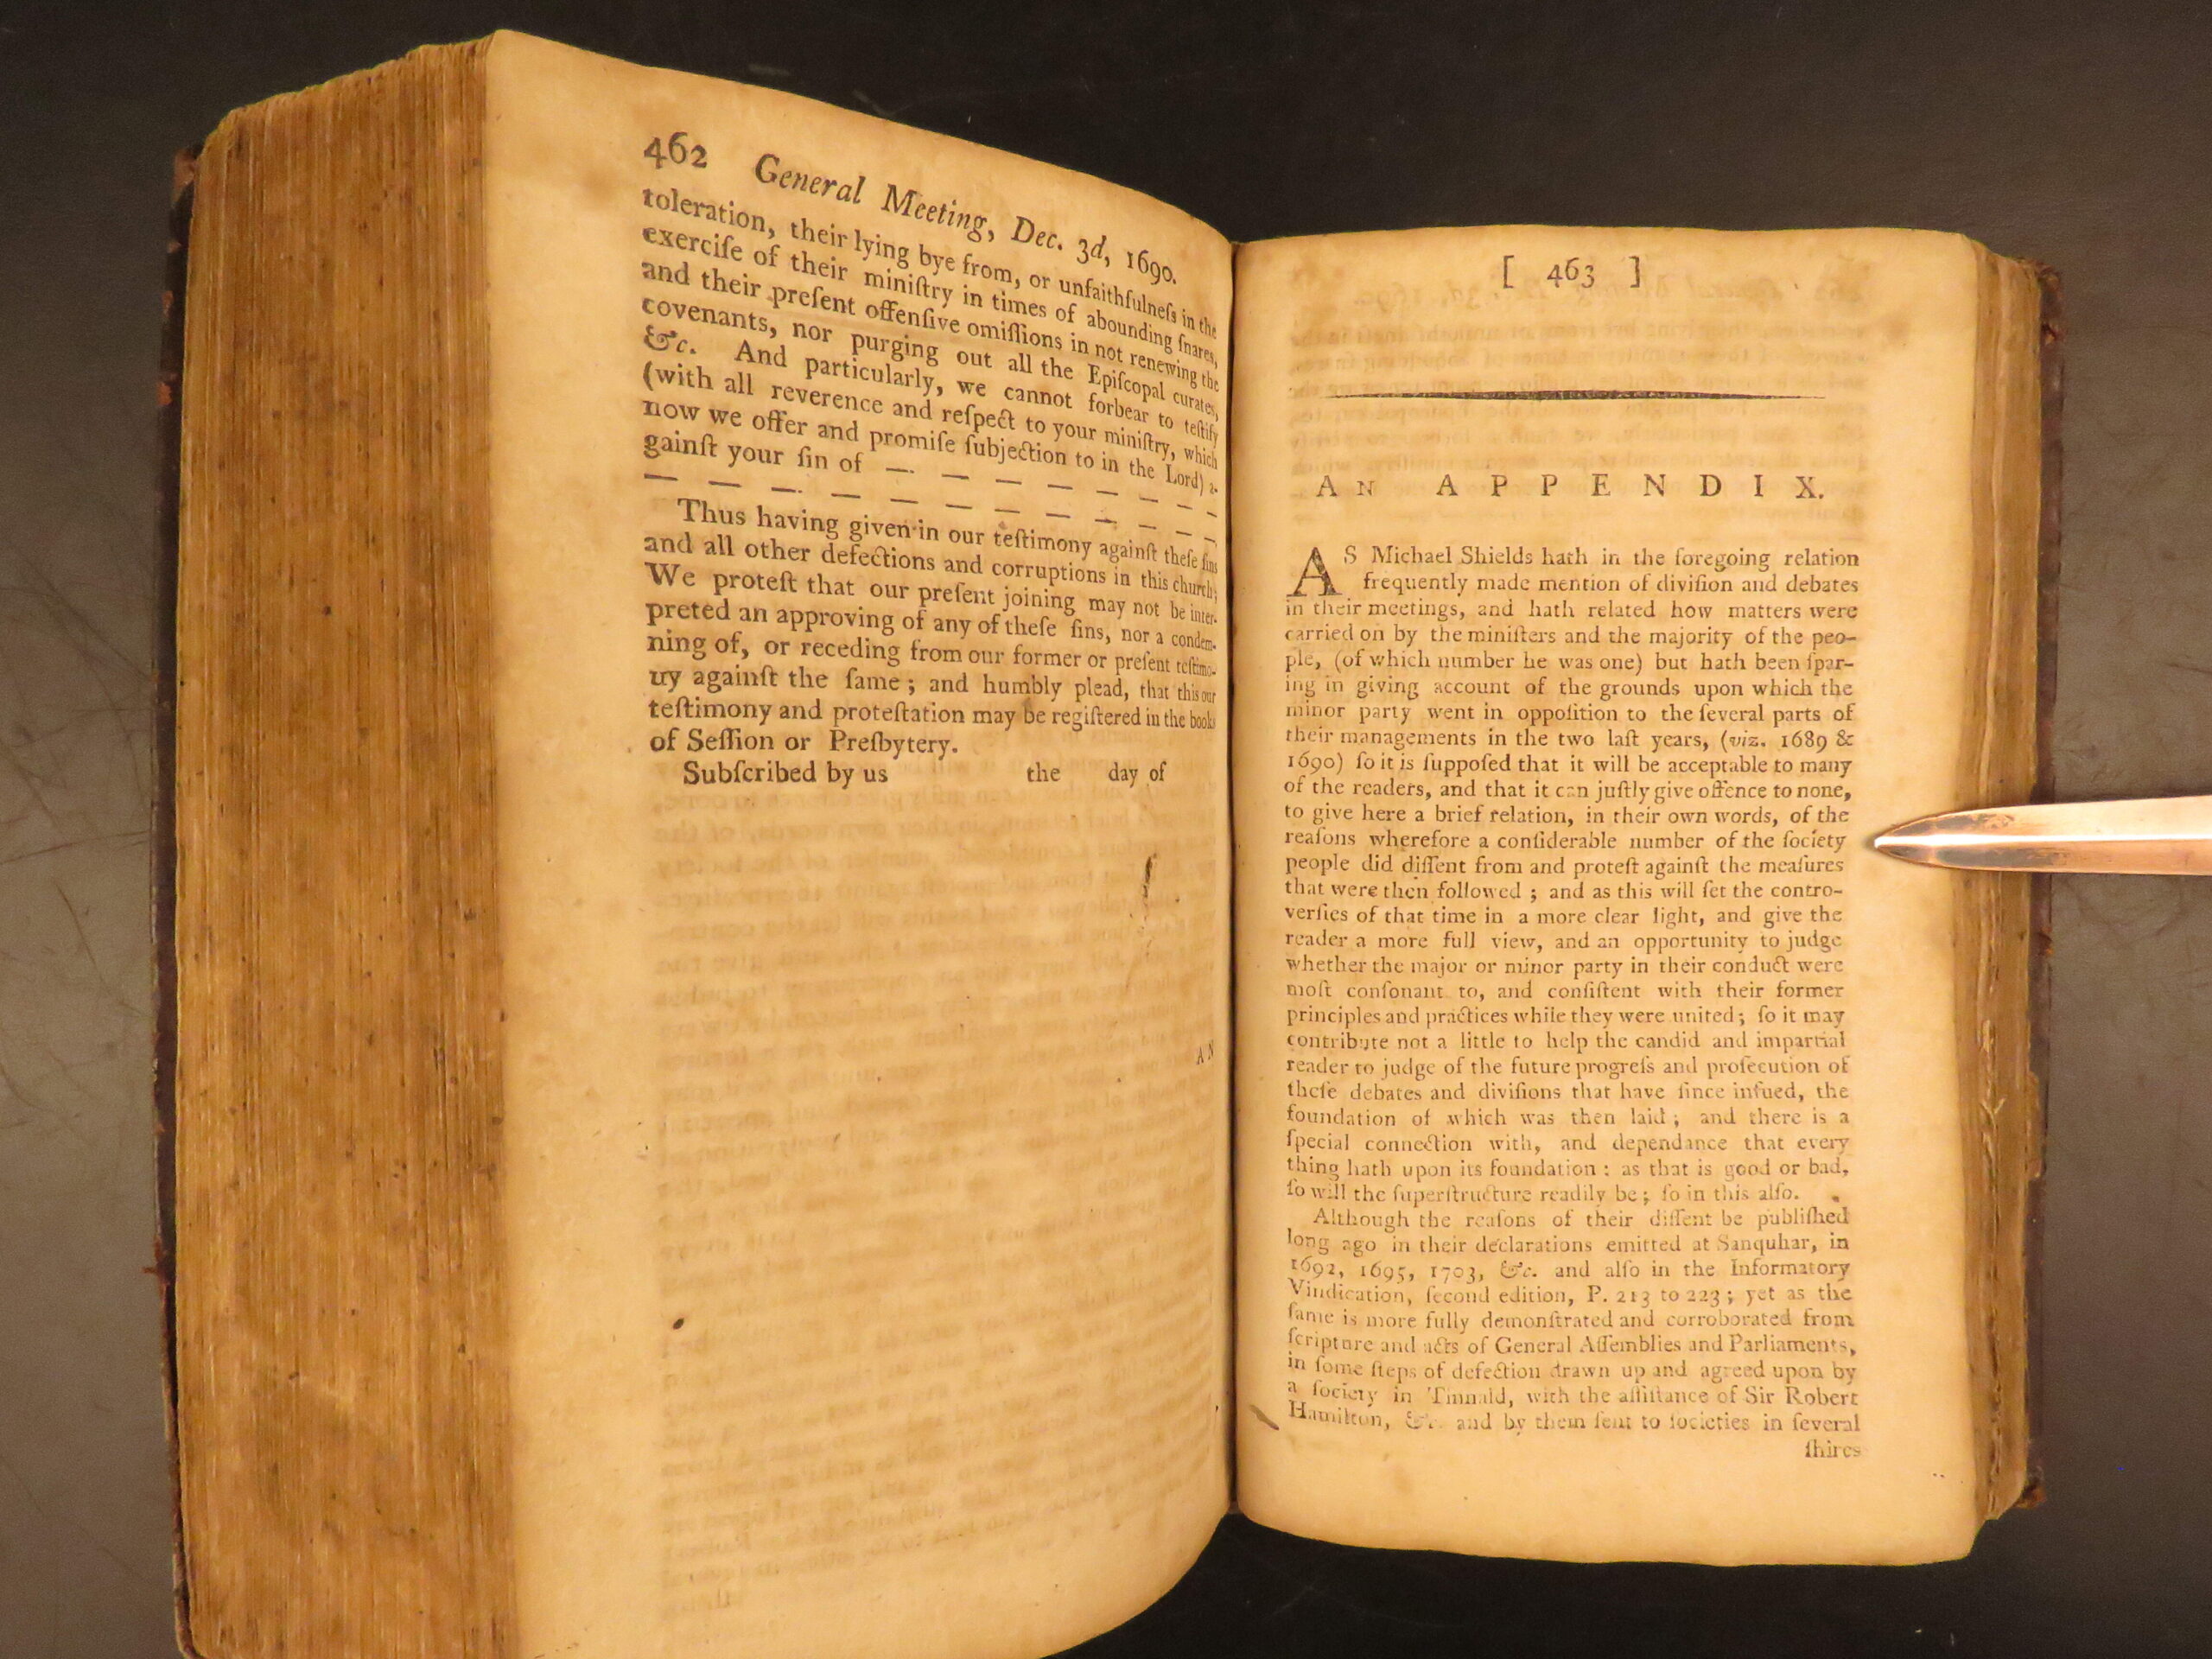 462 General Meeting, Dec. 3d, 1690.
toleration, their lying bye from, or unfaithfulneſs in the
exerciſe of their miniſtry in times of abounding ſnares,
and their preſent offenſive omiſſions in not renewing the
covenants, nor purging out all the Epiſcopal curates,
&c. And particularly, we cannot forbear to teſtify
(with all reverence and reſpect to your miniſtry, which
now we offer and promiſe ſubjection to in the Lord) a-
gainſt your ſin of — — — — — —
— — — — — — — — — —
Thus having given in our teſtimony againſt theſe ſins
and all other defections and corruptions in this church;
We proteſt that our preſent joining may not be inter-
preted an approving of any of theſe ſins, nor a condem-
ning of, or receding from our former or preſent teſtimo-
ny againſt the ſame; and humbly plead, that this our
teſtimony and proteſtation may be regiſtered in the books
of Seſſion or Preſbytery.
Subſcribed by us the day of
AN
[ 463 ]
AN APPENDIX.
AS Michael Shields hath in the foregoing relation
frequently made mention of diviſion and debates
in their meetings, and hath related how matters were
carried on by the miniſters and the majority of the peo-
ple, (of which number he was one) but hath been ſpar-
ing in giving account of the grounds upon which the
minor party went in oppoſition to the ſeveral parts of
their managements in the two laſt years, (viz. 1689 &
1690) ſo it is ſuppoſed that it will be acceptable to many
of the readers, and that it can juſtly give offence to none,
to give here a brief relation, in their own words, of the
reaſons wherefore a conſiderable number of the ſociety
people did diſſent from and proteſt againſt the meaſures
that were then followed; and as this will ſet the contro-
verſies of that time in a more clear light, and give the
reader a more full view, and an opportunity to judge
whether the major or minor party in their conduct were
moſt conſonant to, and conſiſtent with their former
principles and practices while they were united; ſo it may
contribute not a little to help the candid and impartial
reader to judge of the future progreſs and proſecution of
theſe debates and diviſions that have ſince inſued, the
foundation of which was then laid; and there is a
ſpecial connection with, and dependance that every
thing hath upon its foundation: as that is good or bad,
ſo will the ſuperſtructure readily be; ſo in this alſo.
Although the reaſons of their diſſent be publiſhed
long ago in their declarations emitted at Sanquhar, in
1692, 1695, 1703, &c. and alſo in the Informatory
Vindication, ſecond edition, P. 213 to 223; yet as the
ſame is more fully demonſtrated and corroborated from
ſcripture and acts of General Aſſemblies and Parliaments,
in ſome ſteps of defection drawn up and agreed upon by
a ſociety in Tinnald, with the aſſiſtance of Sir Robert
Hamilton, &c. and by them ſent to ſocieties in ſeveral
ſhires